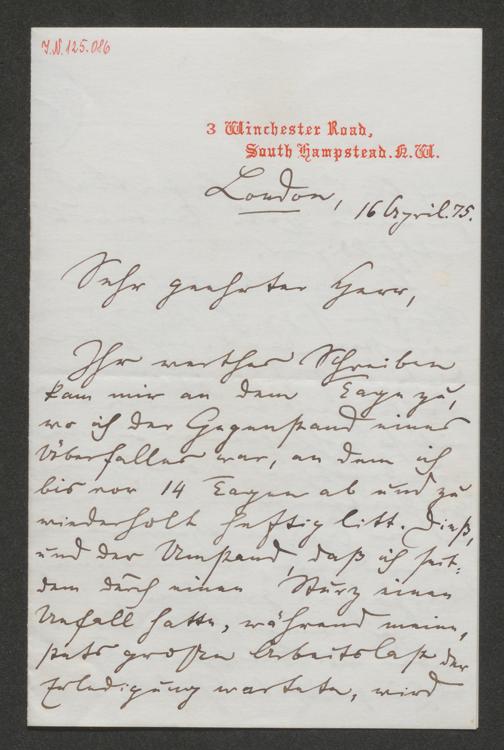 I.N. 125.086
3 Winchester Road,
South Hampstead. N.W.
London,
16 April. 75.
Sehr geehrter Herr,
Ihr werthes Schreiben
kam mir an dem Tage zu,
wo ich der Gegenstand eines
Überfalles war, an dem ich
bis vor 14 Tagen ab und zu
wiederholt heftig litt. Dieß,
und der Umstand, daß ich seit-
dem durch einen Sturz einen
Unfall hatte, während meine,
stets große Arbeitslast der
Erledigung wartete, wird